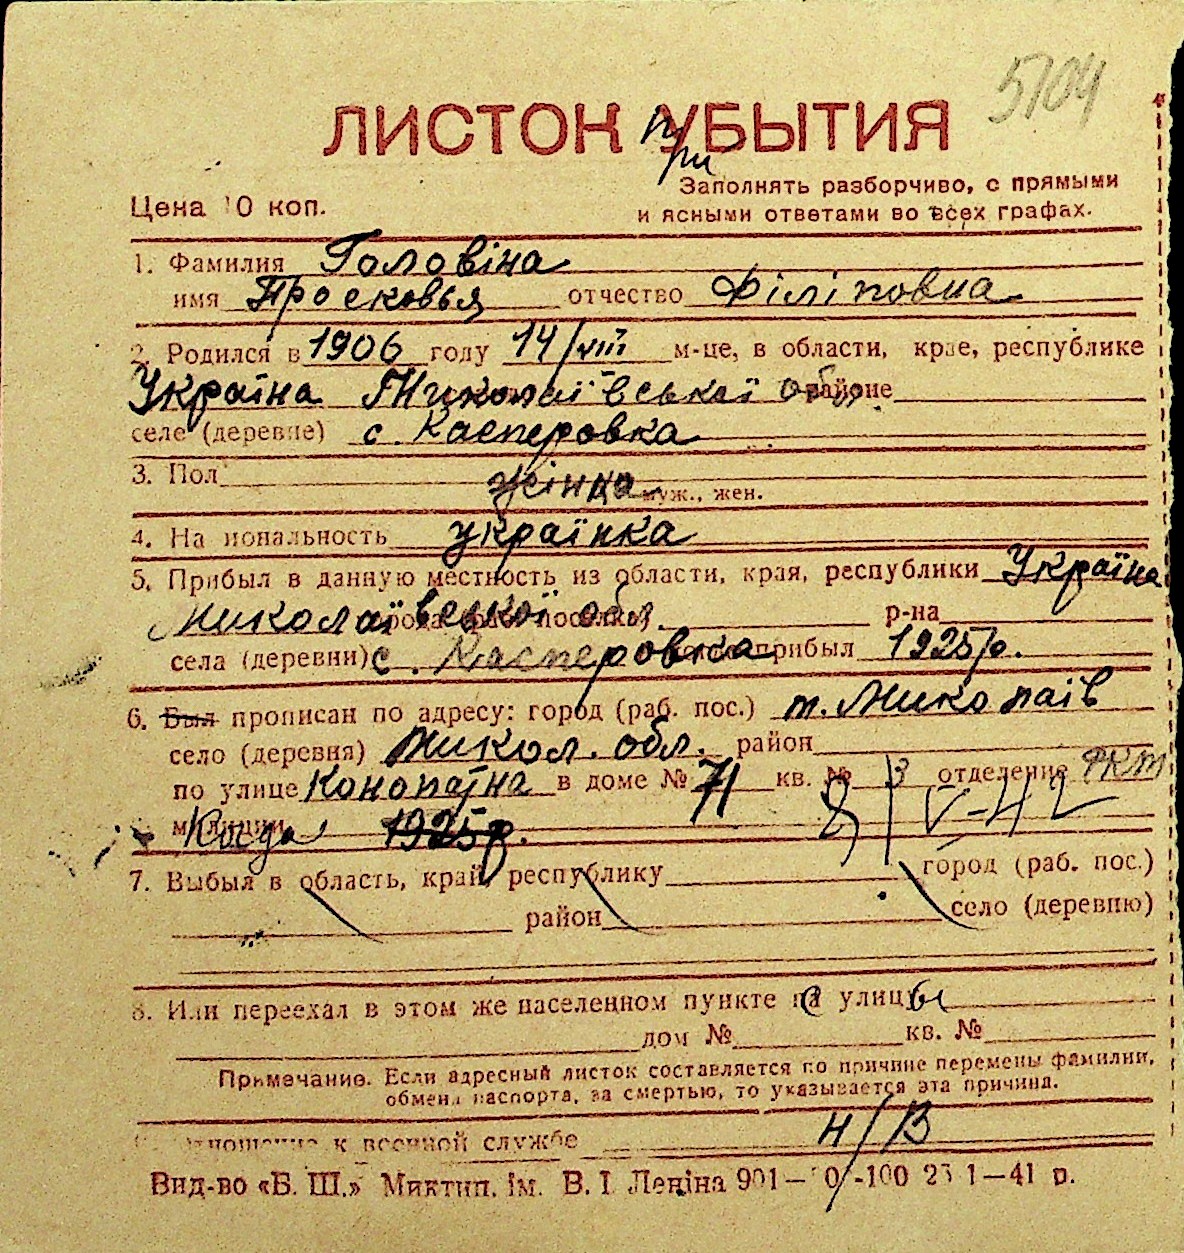 5704
ЛИСТОК УБЫТИЯ
при
Заполнять разборчиво, с прямыми
Цена 10 коп.
и ясными ответами во всех графах.
1. Фамилия Головіна
имя Просковья отчество Філіповна
2. Родился в 1906 году 14/VIII м-це, в области, крае, республике
Україна Миколаївської обл. районе
селе (деревне) с. Касперовка
3. Пол жінка муж., жен.
4. Национальность українка
5. Прибыл в данную местность из области, края, республики Україна
Миколаївської обл. р-на
села (деревни) с. Касперовка прибыл 1925 р.
6. Был прописан по адресу: город (раб. пос.) м. Миколаїв
село (деревня) Микол. обл. район
по улице в доме № 71 кв. № 3 отделение РКМ
милиции Когда 1925 р. V-42
7. Выбыл в область, край, республику город (раб. пос.)
район село (деревню)
8. Или переехал в этом же населенном пункте на улицу
дом № кв. №
Примечание. Если адресный листок составляется по причине перемены фамилии,
обмена паспорта, за смертью, то указывается эта причина.
9. Отношение к военной службе н/в
Вид-во «Б. Ш.» Миктип. ім. В. І. Леніна 901—10-100 23 1—41 р.